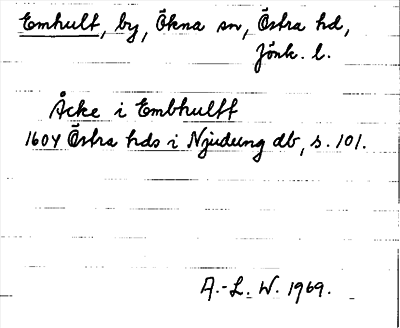 Emhult, by, Ökna sn, Östra hd,
Jönk. l.
Åcke i Embhultt
1604 Östra hds i Njudung db, s. 101.
A.-L. W. 1969.